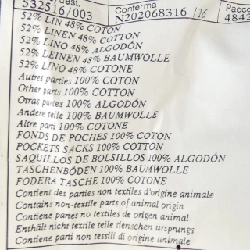 5325 0/003
Conferma
N202068316
Paca
4842
52% LIN 48% COTON
52% LINEN 48% COTTON
52% LINO 48% ALGODÓN
52% LEINEN 48% BAUMWOLLE
52% LINO 48% COTONE
Autres parties 100% COTON
Other parts 100% COTTON
Otras partes 100% ALGODÓN
Andere teile 100% BAUMWOLLE
Altre parti 100% COTONE
FONDS DE POCHES 100% COTON
POCKETS SACKS 100% COTTON
SAQUILLOS DE BOLSILLOS 100% ALGODÓN
TASCHENBÖDEN 100% BAUMWOLLE
FODERA TASCHE 100% COTONE
Contient des parties non textiles d'origine animale
Contains non-textile parts of animal origin
Contiene partes no textiles de origen animal
Enthält nicht textile teile tierischen ursprungs
Contiene parti non tessili di origine animale